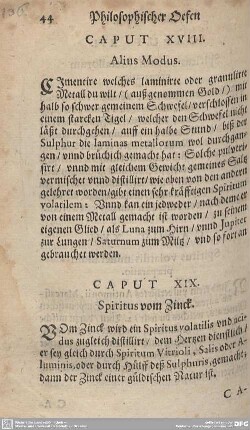 44 Philosophischer Oefen
CAPUT XVIII.
Alius Modus.
CZmentire welches laminirte oder granulirte
Metall du wilt / (außgenommen Gold /) mit
halb so schwer gemeinem Schwefel / verschlossen in
einem starcken Tigel / welcher den Schwefel nicht
läßt durchgehen / auff ein halbe Stund / biß der
Sulphur die laminas metallorum wol durchgan-
gen / vnnd brüchich gemacht hat: Solche pulveri-
sire / vnnd mit gleichem Gewicht gemeines Saltz
vermischet vnnd distillire / wie oben von den andern
gelehret worden / gibt einen sehr kräfftigen Spiritum
volatilem: Vnnd kan ein jedweder / nach dem er
von einem Metall gemacht ist worden / zu seinem
eigenen Glied / als Luna zum Hirn / vnnd Jupiter
zur Lungen / Saturnum zum Miltz / vnd so fort an
gebrauchet werden.
CAPUT XIX.
Spiritus vom Zinck.
VOm Zinck wird ein Spiritus volatilis vnd aci-
dus zugleich distillirt / dem Hertzen dienstlich /
er sey gleich durch Spiritum Vitrioli, Salis oder A-
luminis, oder durch Hülff deß Sulphuris, gemacht,
dann der Zinck einer güldischen Natur ist.
CA-